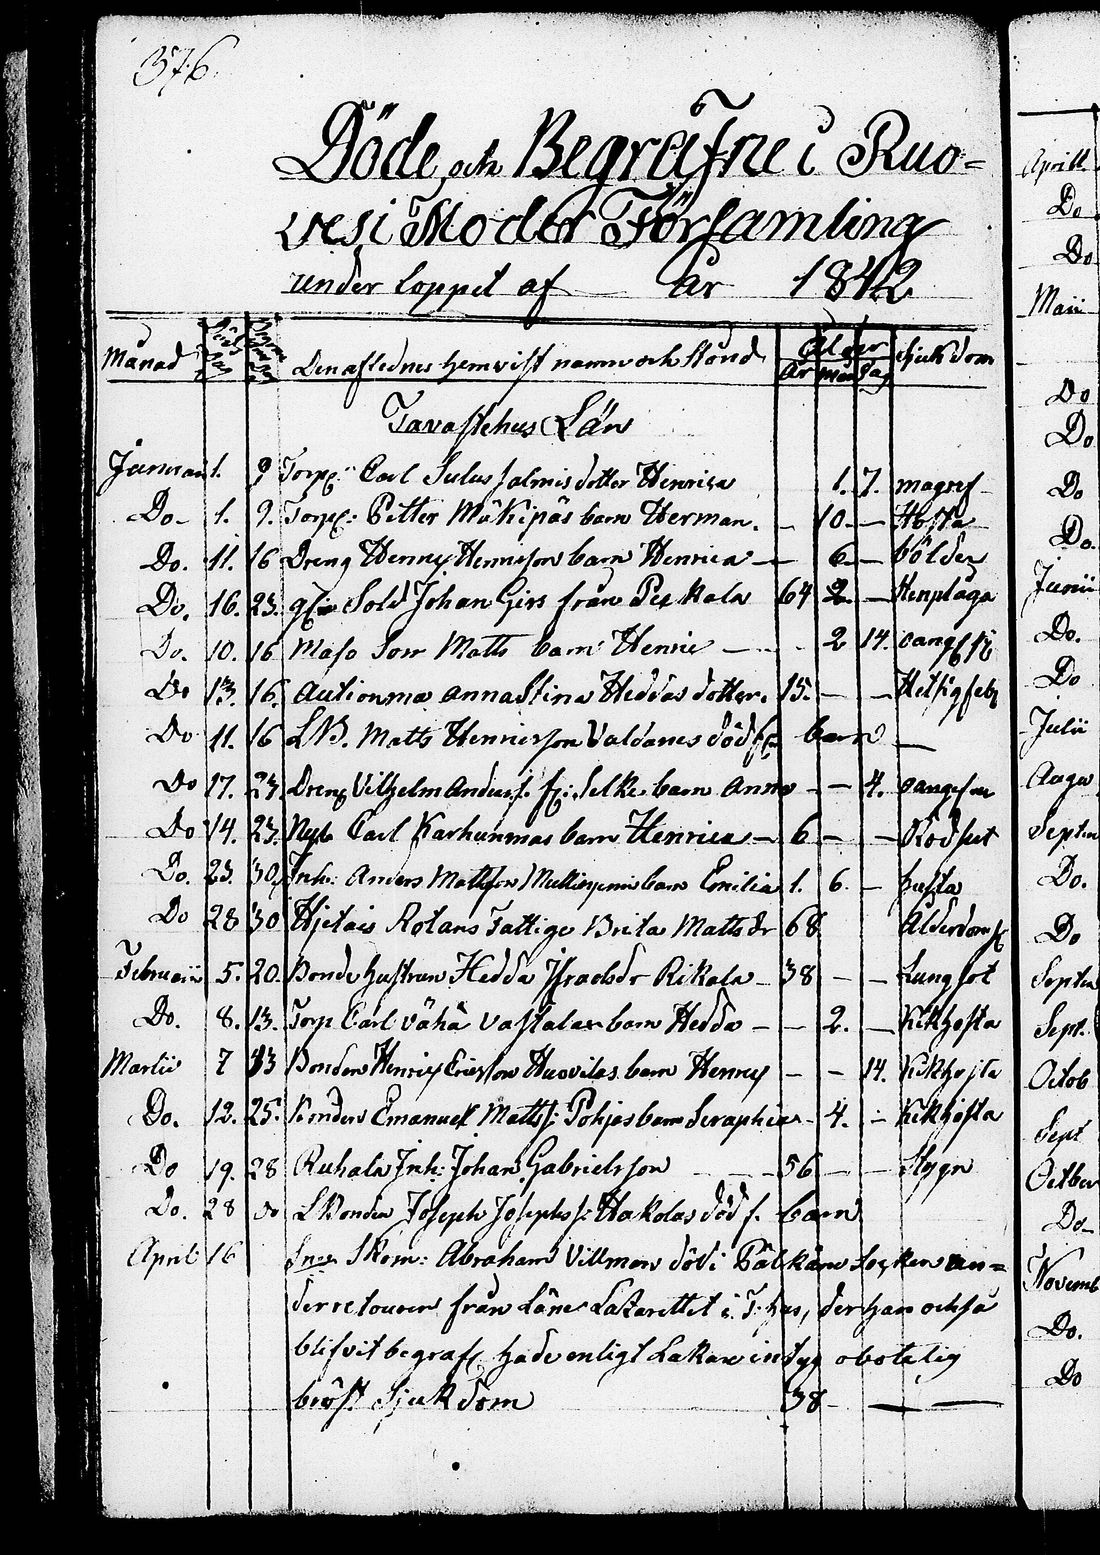 376.
Döde och Begrafne i Ruo-
vesi Moder Församling
under loppet af År 1842
Månad Död dag Den aflednes hemvist namn och stånd Ålder År Mån Dag Sjukdom
Tavastehus Län
Januarii 1. 9 Torp: Carl Sulus dotter Henrica 1. 7. magref
Do 1. 9. Torp: Petter Mäkipäs barn Herman. - 10 - Hosta
Do. 11. 16 Dreng Henric Henricson barn Henrica - 6 - bölder
Do. 16. 23. Sold Johan Girs från Pekkala 64 2. -
Do. 10. 16 Matts barn Henric - 2 14.
Do 13. 16. Anna Stina Heddas dotter. 15. - -
Do 11. 16 LB. Matts Henricsson Valdanes död barn -
Do 17. 23. Dreng Vilhelm Anders Selke barn Anna - - 4.
Do 14. 23. Nyb Carl Karhunmas barn Henrica - 6 - - Rödsot
Do. 23. 30 Inh: Anders Mattson barn Emilia 1. 6. - husta
Do 28 30 Rotans Fattige Brita Matts dr 68 Ålderdom
Februarii 5. 20. Bonde hustrun Hedda Israelsdr Rikala 38 - - Lungsot
Do. 8. 13. Torp Carl Vähä Vastalas barn Hedda - - 2. - Kikhosta
Martii 7 13 Bonden Henric Ericsson Huovilas barn Henric - - 14. Kikhosta
Do. 12. 25. Bonden Emanuel Matts: Pohjas barn Seraphia - 4. - Kikhosta
Do 19. 28 Ruhala Inh: Johan Gabrielsson 56 - - Slagn
Do. 28 do LBonden Joseph Josephs: Hakolas död f. barn
April 16 Skom: Abraham Villman död i Pälkäne Socken un-
der retouren från Läns Lazarettet i T:hus, der han också
blifvit begraf hade enligt Läkare intyg obotelig
bröst Sjukdom 38 - - -
Aprill
Do
Do
Maii
Do
Do
Do
Do.
Junii
Do.
Do
Julii
Augu
Septem
Do.
Do
Septem
Sept.
Octob
Sept
October
Do-
Novemb
Do.
Do